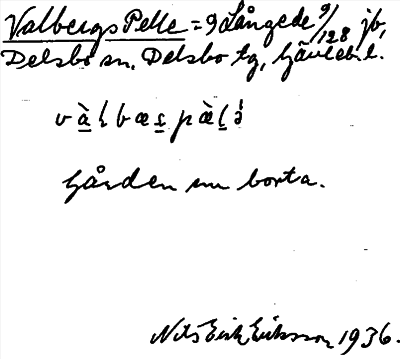 Valbergs Pelle = 9 Långede 9/128 jb,
Delsbo sn, Delsbo tg, Gävleb. l.
v à̱ ɫ b æ s̱ p æ̀ ḻ ə̀
Gården nu borta.
Nils Erik Eriksson 1936.